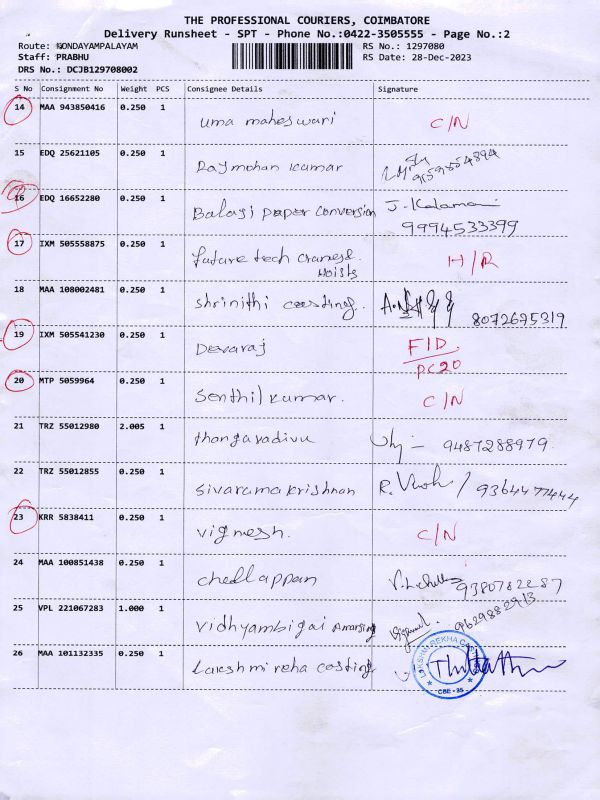 THE PROFESSIONAL COURIERS, COIMBATORE
Delivery Runsheet - SPT - Phone No.:0422-3505555 - Page No.:2
Route: GONDAYAMPALAYAM RS No.: 1297080
Staff: PRABHU RS Date: 28-Dec-2023
DRS No.: DCJB129708002
S No Consignment No Weight PCS Consignee Details Signature
14 MAA 943850416 0.250 1 uma maheswari C/N
15 EDQ 25621105 0.250 1 Rajmohan kumar 9159854894
16 EDQ 16652280 0.250 1 Balaji paper conversion J. Kalamani
9994533399
17 IXM 505558875 0.250 1 future tech cranes & H/R
Hoists
18 MAA 108002481 0.250 1 Shrinithi casting. 8072695319
19 IXM 505541230 0.250 1 Devaraj FID
PC20
20 MTP 5059964 0.250 1 Senthil kumar. C/N
21 TRZ 55012980 2.005 1 thangavadivu 9487288979
22 TRZ 55012855 0.250 1 Sivaramakrishnan 9364477444
23 KRR 5838411 0.250 1 vignesh. C/N
24 MAA 100851438 0.250 1 chellappan 9380782287
25 VPL 221067283 1.000 1 vidhyambigai 9629882913
26 MAA 101132335 0.250 1 Lakshmi reha casting
CBE - 35